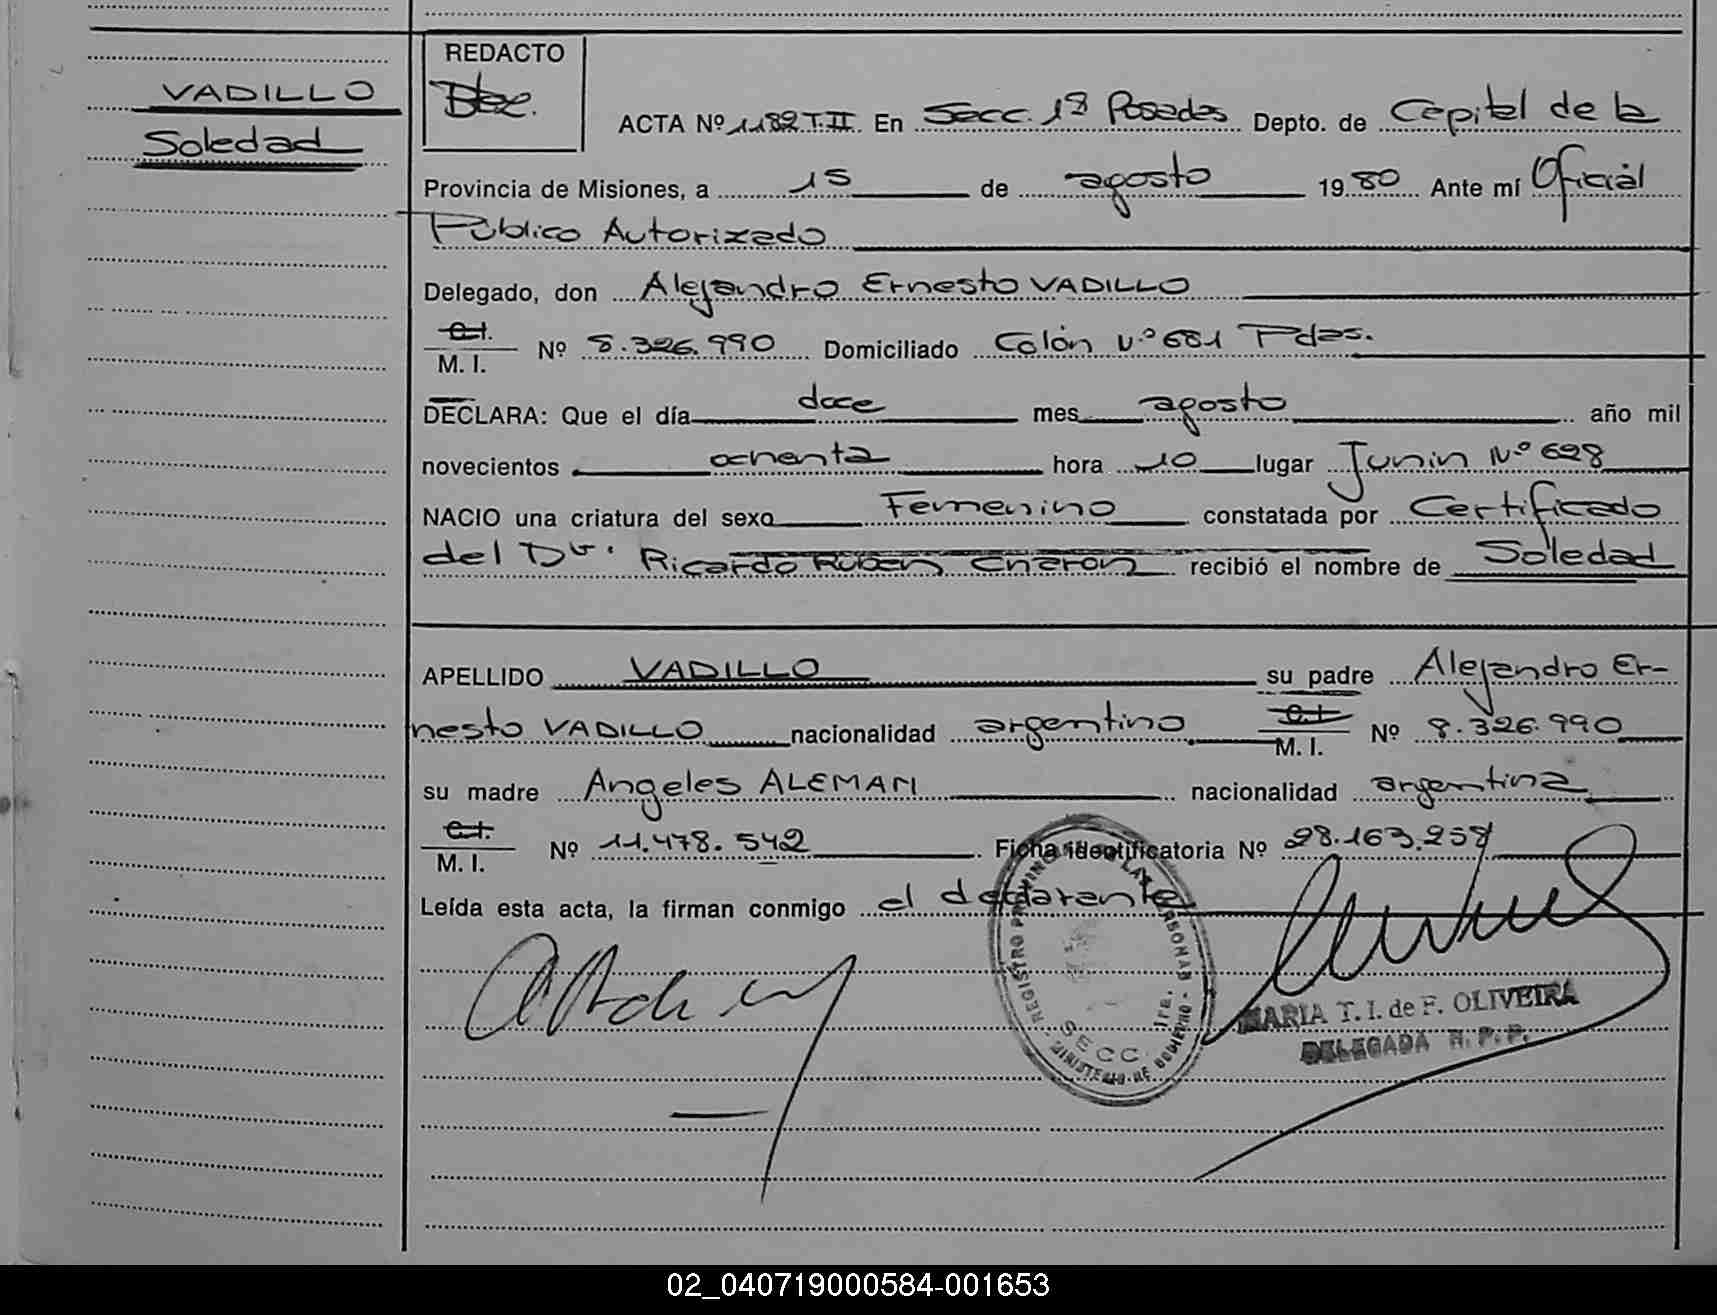 VADILLO
Soledad
REDACTO
ACTA Nº 1182 T.II. En Secc. 1ª Posadas Depto. de Capital de la
Provincia de Misiones, a 15 de agosto 1980 Ante mí Oficial
Público Autorizado
Delegado, don Alejandro Ernesto VADILLO
C.I.
M. I. Nº 8.326.990 Domiciliado Colón Nº 681 Pdas.
DECLARA: Que el día doce mes agosto año mil
novecientos ochenta hora 10 lugar Junin Nº 628
NACIO una criatura del sexo Femenino constatada por Certificado
del Dr. Ricardo Ruben recibió el nombre de Soledad
APELLIDO VADILLO su padre Alejandro Er-
nesto VADILLO nacionalidad argentino C.I. M. I. Nº 8.326.990
su madre Angeles ALEMAN nacionalidad argentina
C.I.
M. I. Nº 11.478.542 Ficha identificatoria Nº 28.163.257
Leída esta acta, la firman conmigo el declarante
REGISTRO PROVINC LAS PERSONAS
SECC. 1ra.
MINISTERIO DE GOBIERNO
MARIA T. I. de F. OLIVEIRA
DELEGADA R. P. P.
02_040719000584-001653